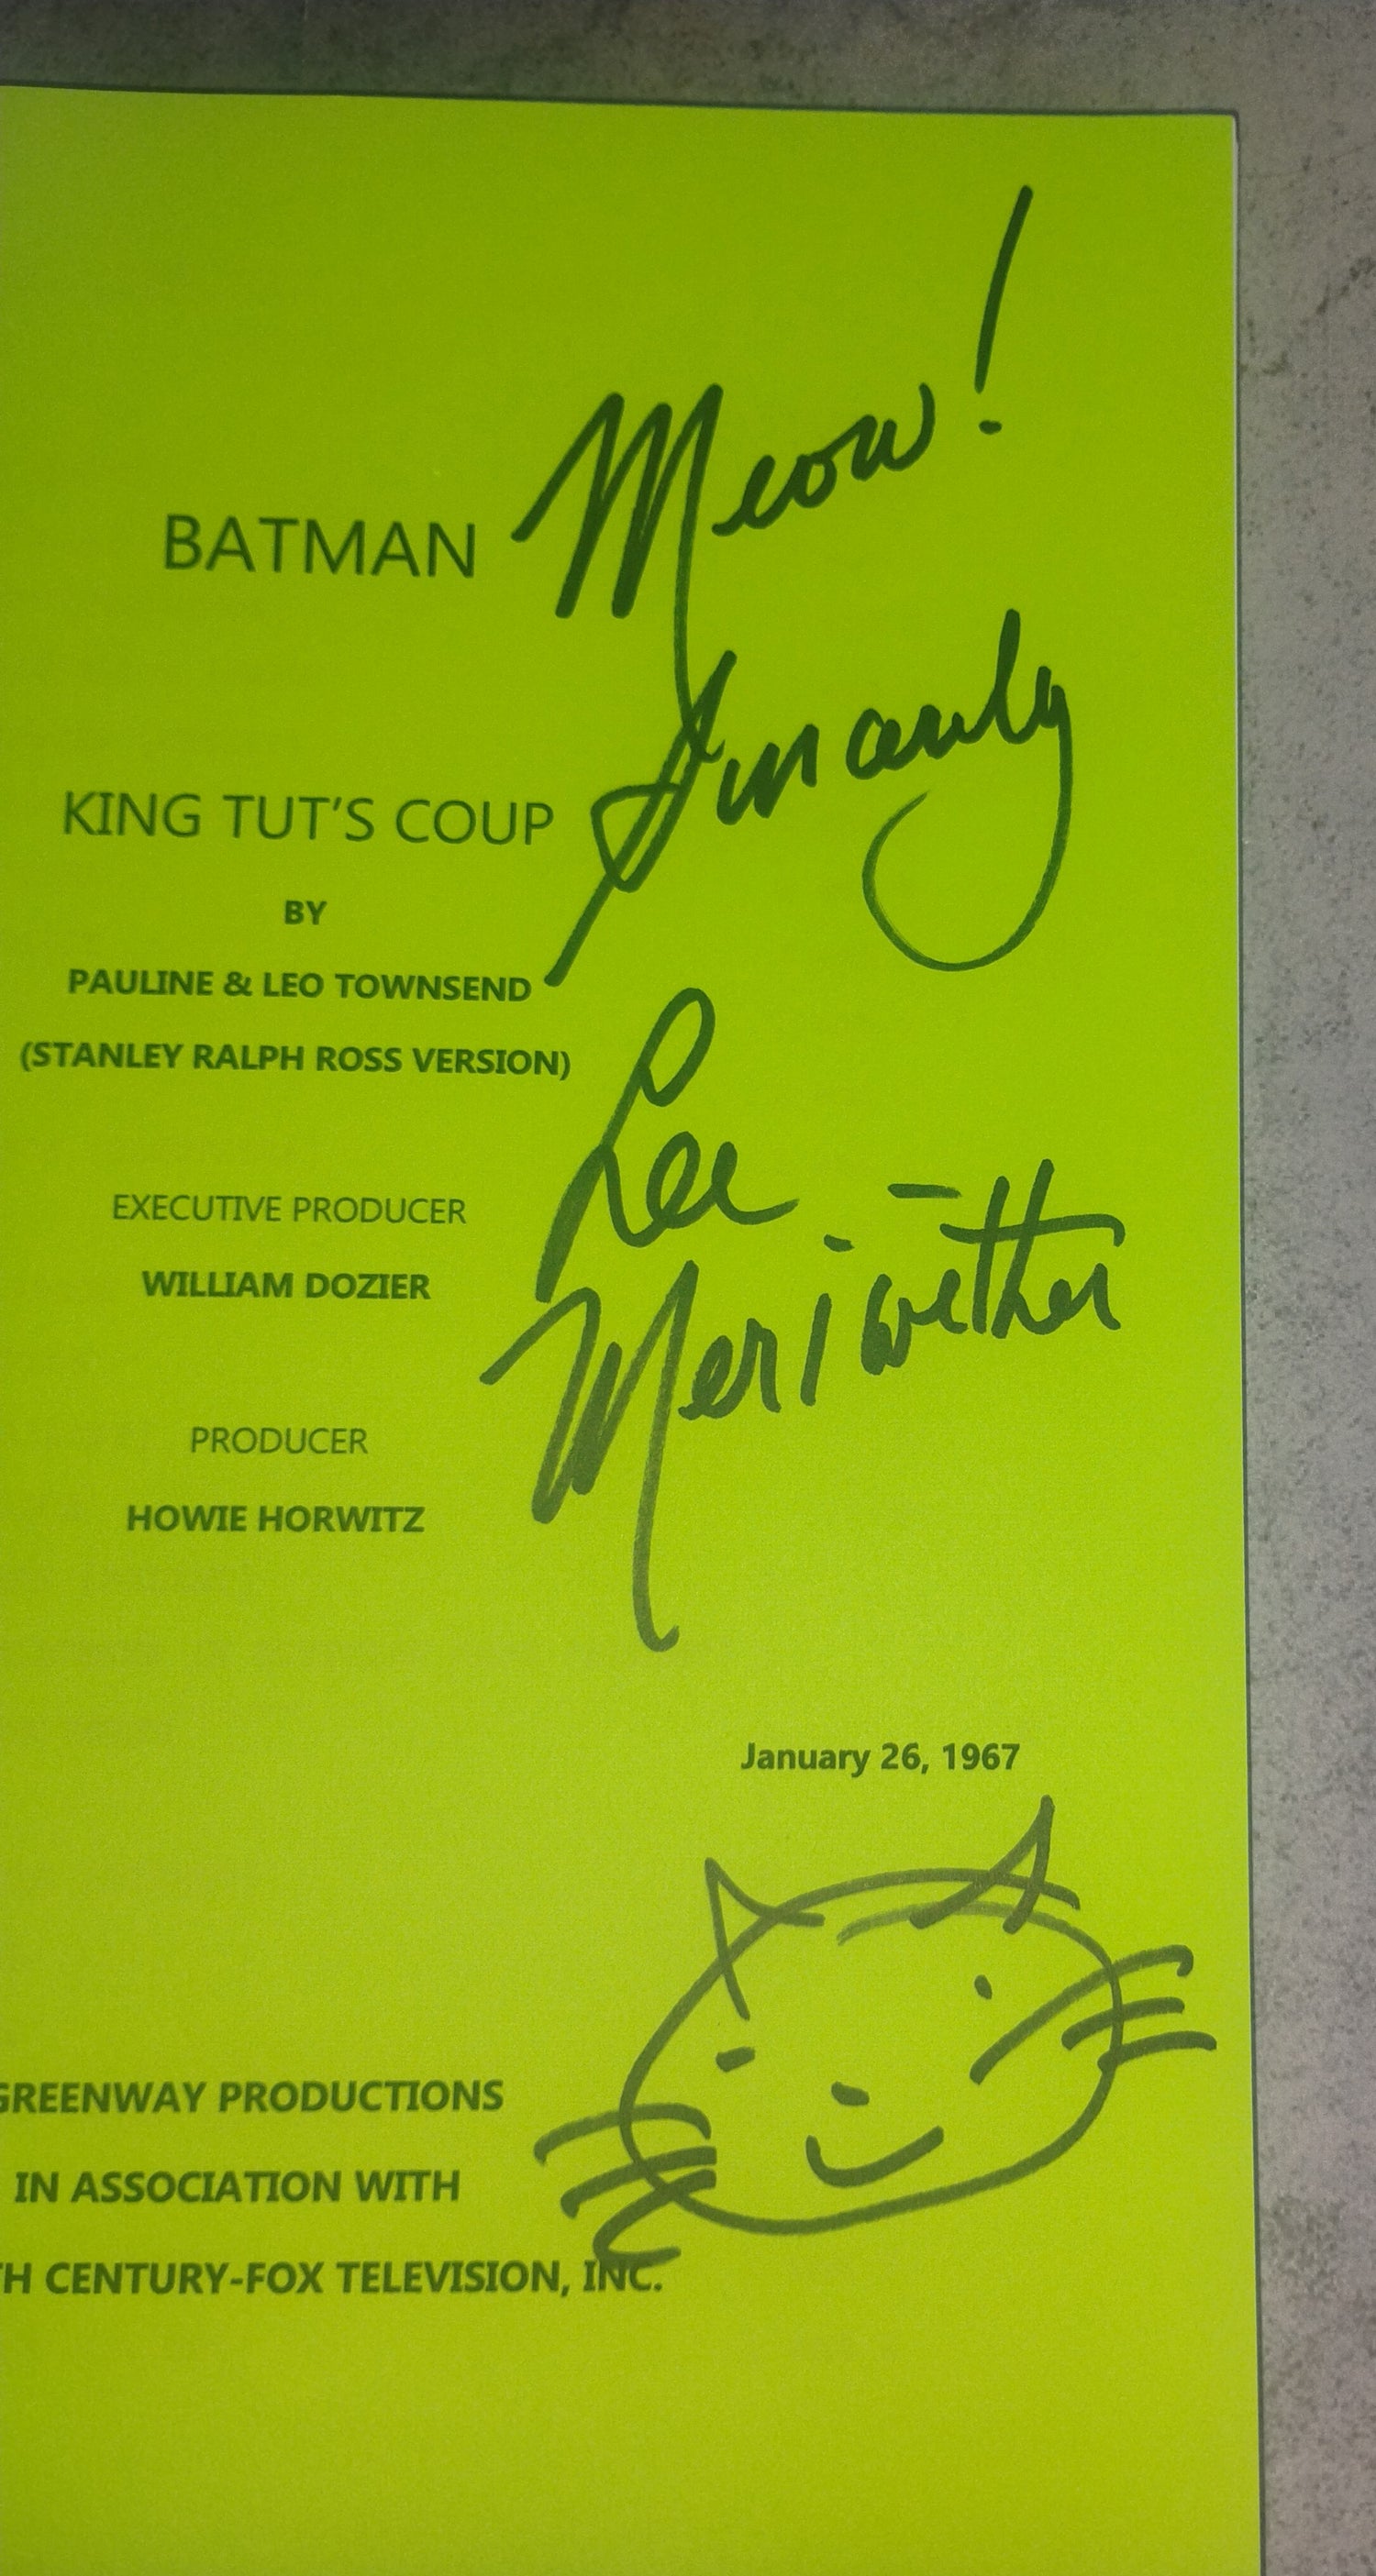 Meow!
BATMAN
Sincerely
KING TUT'S COUP
BY
PAULINE & LEO TOWNSEND
(STANLEY RALPH ROSS VERSION)
Lee
Meriwether
EXECUTIVE PRODUCER
WILLIAM DOZIER
PRODUCER
HOWIE HORWITZ
January 26, 1967
GREENWAY PRODUCTIONS
IN ASSOCIATION WITH
TH CENTURY-FOX TELEVISION, INC.